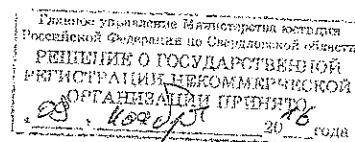 Главное управление Министерства юстиции
Российской Федерации по Свердловской области
РЕШЕНИЕ О ГОСУДАРСТВЕННОЙ
РЕГИСТРАЦИИ НЕКОММЕРЧЕСКОЙ
ОРГАНИЗАЦИИ ПРИНЯТО
ноября 2016 года